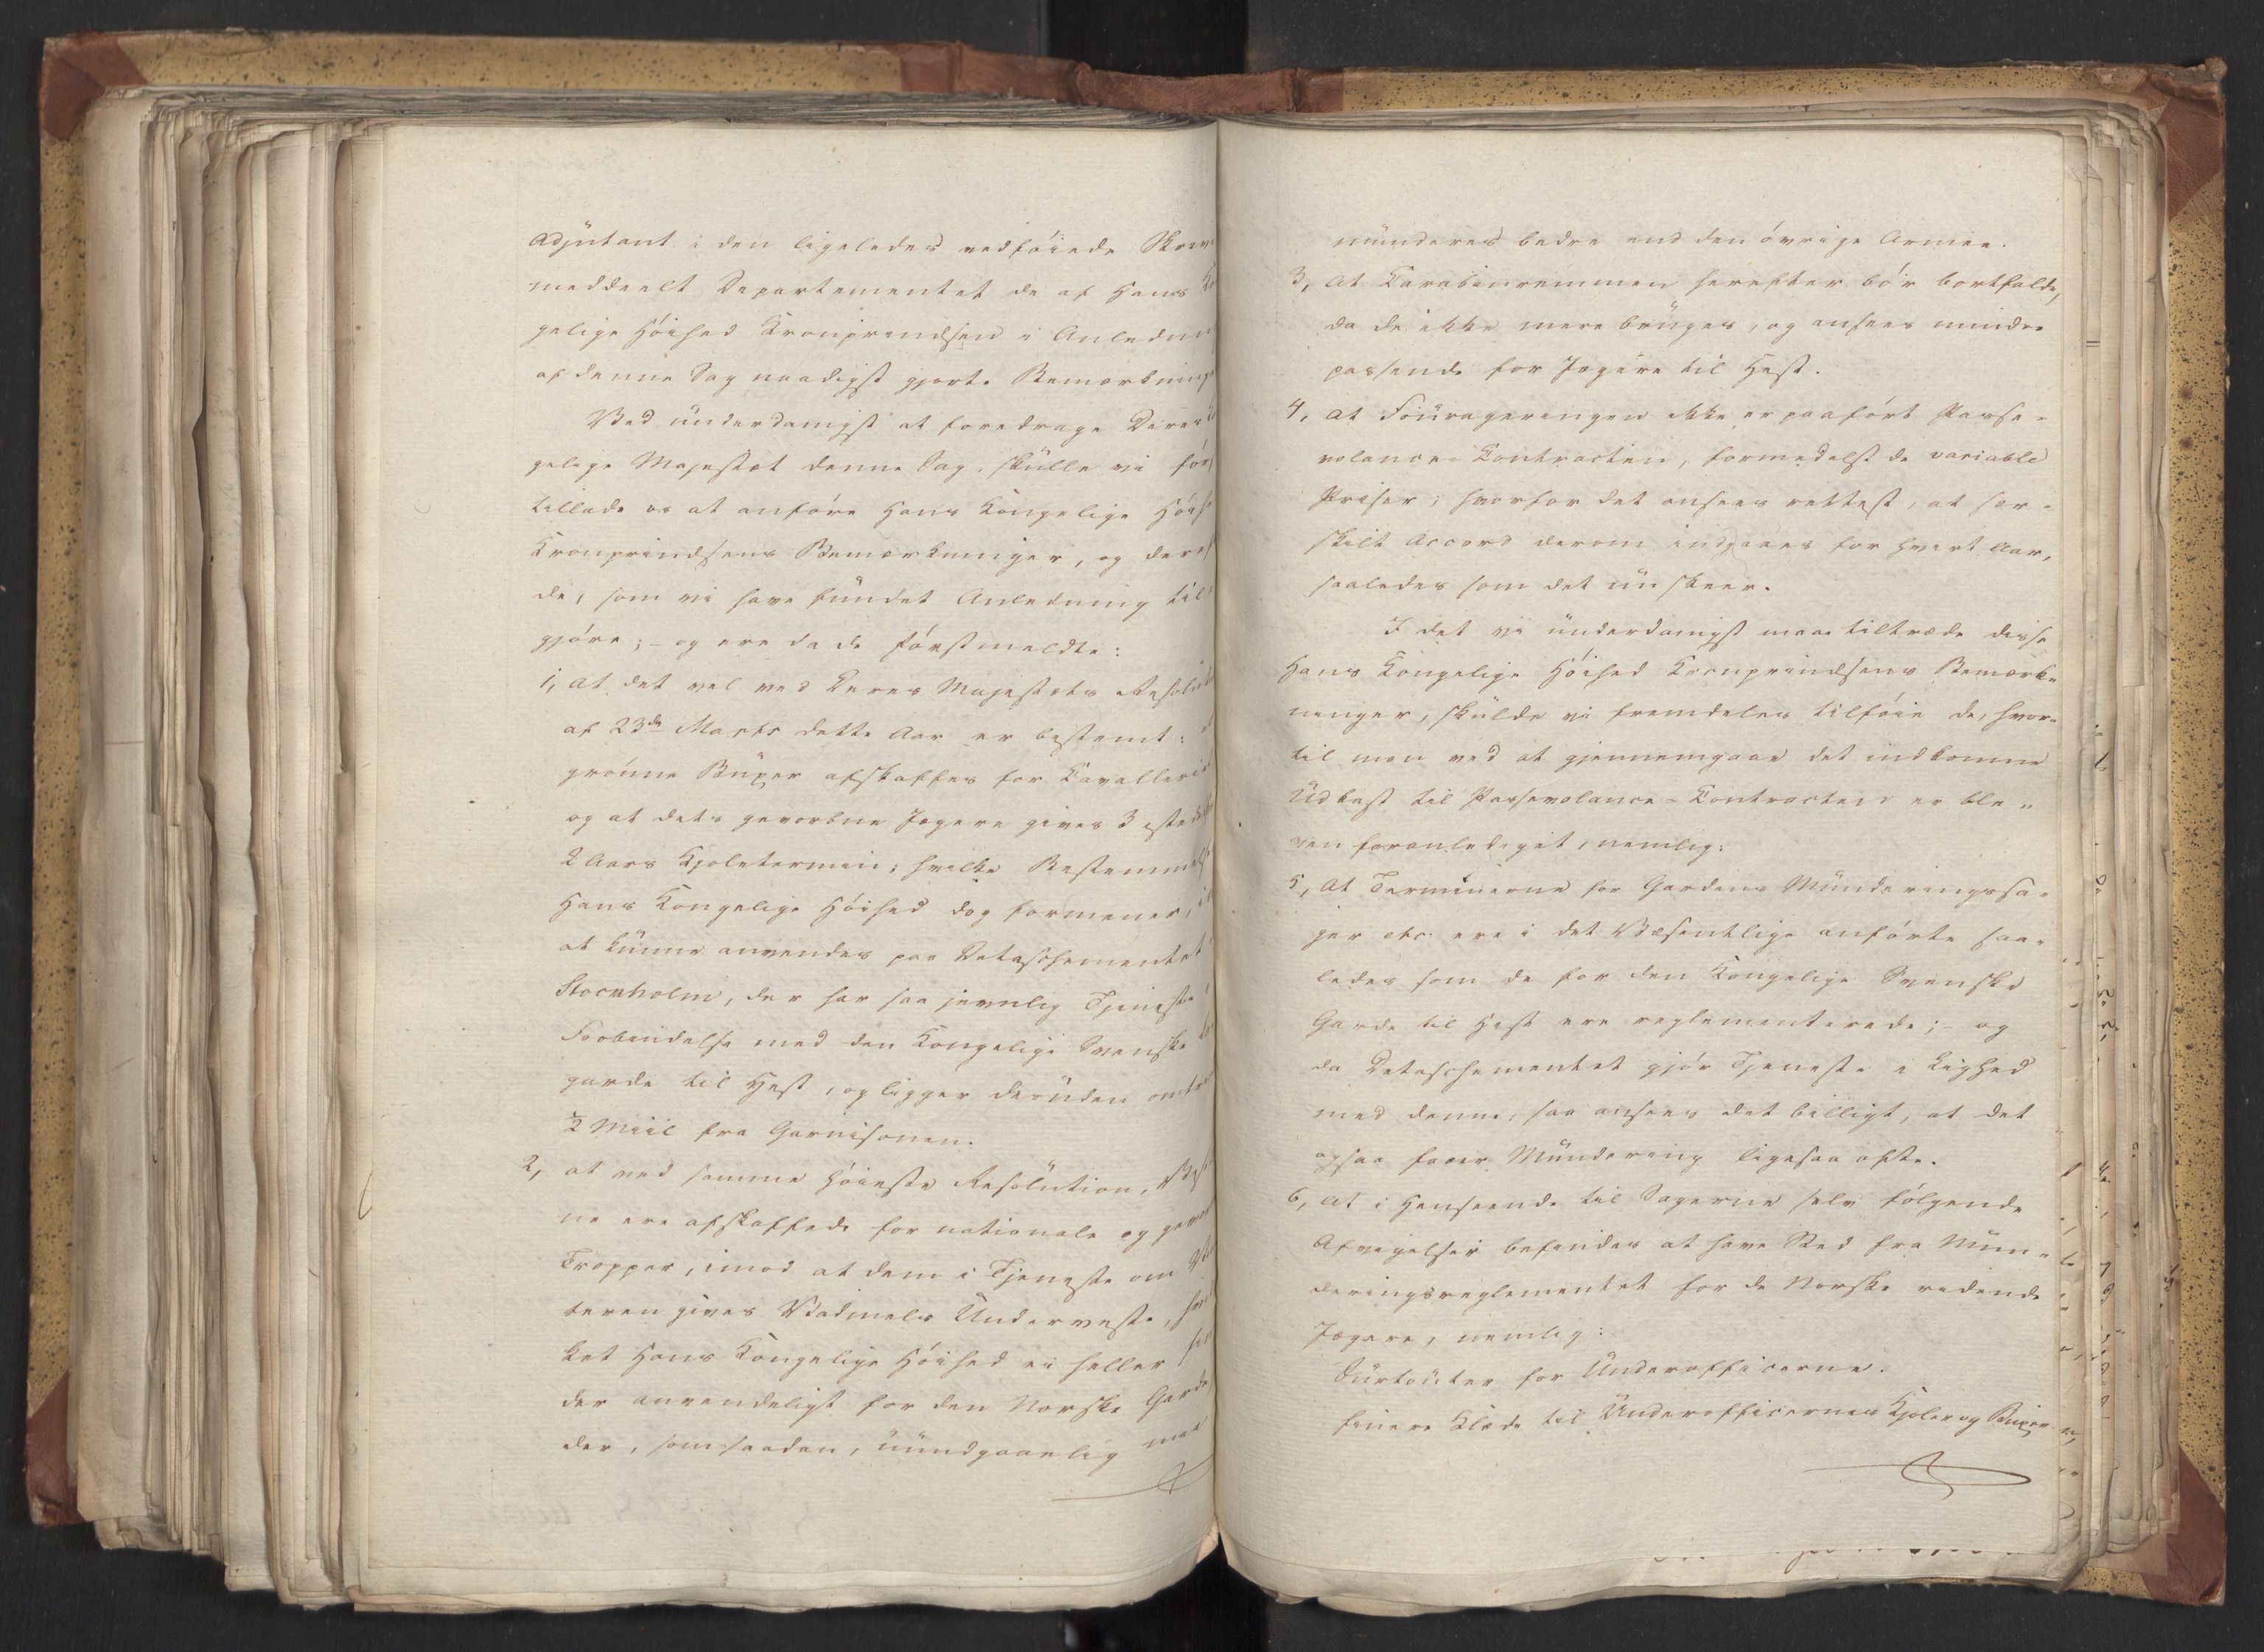 Adjutant i den ligeledes vedføiede Skriv
meddeelt Departementet de af Hans Ko
gelige Høihed Kronprindsen i Anledn
af denne Sag naadigst gjorte Bemærkninge
Ved underdanigst at foredrage Deres
gelige Majestæt denne Sag, skulle vi før
tillade os at anføre Hans Kongelige Høih
Kronprindsens Bemærkninger, og der
de, som vi have fundet Anledning til
gjøre; - og ere da de førstmeldte:
1, At det vel ved Deres Majestæts Resolut
af 23de Marts dette Aar er bestemt:
grønne Buxer afskaffes for Cavalleri
og at dets gevorbne Jægere gives 3 isted
2 Aars Kjoletermin; hvilke Bestemmelse
Hans Kongelige Høihed dog formener,
at kunne anvendes paa Detaschementet
Stockholm, der har saa jevnlig Tjeneste
Forbindelse med den Kongelige Svenske
garde til Hest, og ligger desuden omtr
½ Miil fra Garnisonen.
2, at ved samme høieste Resolution,
ne ere afskaffede for nationale og gevor
Tropper, imod at dem i Tjeneste om
teren gives Vadmels Underveste,
ket Hans Kongelige Høihed ei heller
der anvendeligt for den Norske Garde
der, som saadan, uundgaaelig maa
munderes bedre end den øvrige Armee.
3, At Carabinremmen herefter bør bortfalde,
da de ikke mere bruges, og ansees mindre
passende for Jægere til Hest.
4, At Fourageringen ikke er paaført Passe-
volance-Contracten, formedelst de variable
Priser; hvorfor det ansees rettest, at sær-
skilt Accord derom indgaaes for hvert Aar,
saaledes som det nu skeer.
I det vi underdanigst maae tiltræde disse
Hans Kongelige Høihed Kronprindsens Bemærk-
ninger, skulde vi fremdeles tilføie de, hvor-
til man ved at gjennemgaae det indkomne
Udkast til Passevolance-Contracten er ble-
ven foranlediget, nemlig:
5, At Terminerne for Gardens Munderingssa-
ger etc. ere i det Væsentlige anførte saa-
ledes som de for den Kongelige Svenske
Garde til Hest ere reglementerede; - og
da Detaschementet gjør Tjeneste i Lighed
med denne, saa ansees det billigt, at det
ogsaa faaer Mundering ligesaa ofte.
6, At i Henseende til Sagerne selv følgende
Afvigelser befindes at have Sted fra Mun-
deringsreglementet for de Norske ridende
Jægere, nemlig:
Surtouter for Underofficerne.
finere Klæde til Underofficernes Kjoler og Buxer.